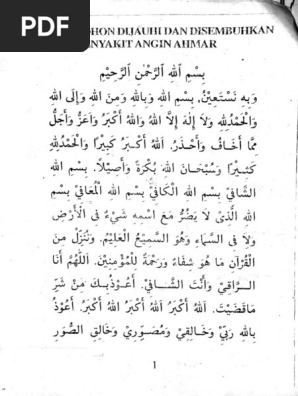 PDF
OHON DIJAUHI DAN DISEMBUHKAN
NYAKIT ANGIN AHMAR
بِسْمِ اللهِ الرَّحْمٰنِ الرَّحِيْمِ
وَبِهِ نَسْتَعِيْنُ. بِسْمِ اللهِ وَبِاللهِ وَمِنَ اللهِ وَإِلَى اللهِ
وَالْحَمْدُ لِلّٰهِ وَلَا إِلٰهَ إِلَّا اللهُ وَاللهُ أَكْبَرُ وَأَعَزُّ وَأَجَلُّ
مِمَّا أَخَافُ وَأَحْذَرُ. اَللهُ أَكْبَرُ كَبِيْرًا وَالْحَمْدُ لِلّٰهِ
كَثِيْرًا وَسُبْحَانَ اللهِ بُكْرَةً وَأَصِيْلًا. بِسْمِ اللهِ
الشَّافِيْ بِسْمِ اللهِ الْكَافِيْ بِسْمِ اللهِ الْمُعَافِيْ بِسْمِ
اللهِ الَّذِيْ لَا يَضُرُّ مَعَ اسْمِهِ شَيْءٌ فِي الْأَرْضِ
وَلَا فِي السَّمَاءِ وَهُوَ السَّمِيْعُ الْعَلِيْمُ. وَنُنَزِّلُ مِنَ
الْقُرْآنِ مَا هُوَ شِفَاءٌ وَرَحْمَةٌ لِلْمُؤْمِنِيْنَ. اَللّٰهُمَّ أَنَا
الرَّاقِيْ وَأَنْتَ الشَّافِيْ. أَعُوْذُ بِكَ مِنْ شَرِّ
مَا قَضَيْتَ. اَللهُ أَكْبَرُ اَللهُ أَكْبَرُ اَللهُ أَكْبَرُ. أَعُوْذُ
بِاللهِ رَبِّيْ وَخَالِقِيْ وَمُصَوِّرِيْ وَخَالِقِ الصُّوَرِ
1